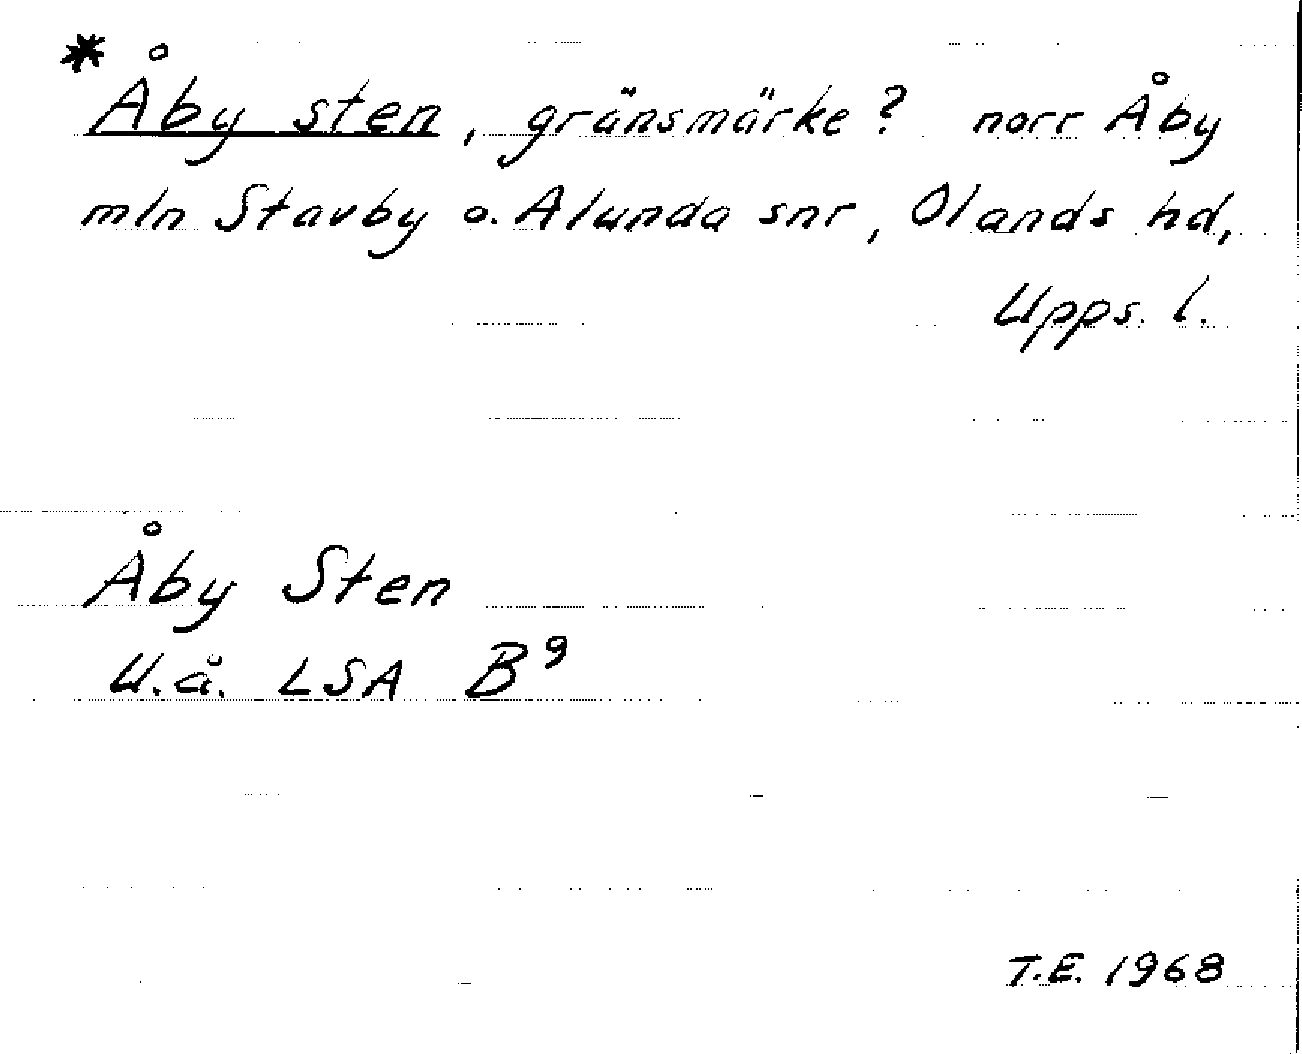 * Åby sten, gränsmärke? norr Åby
mln Stavby o. Alunda snr, Olands hd,
Upps. l.
Åby Sten
U.å. LSA B⁹
T.E. 1968